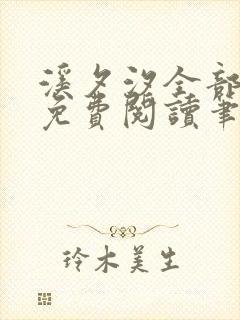 溪夕汐全部
免費閱讀筆
玲木美生